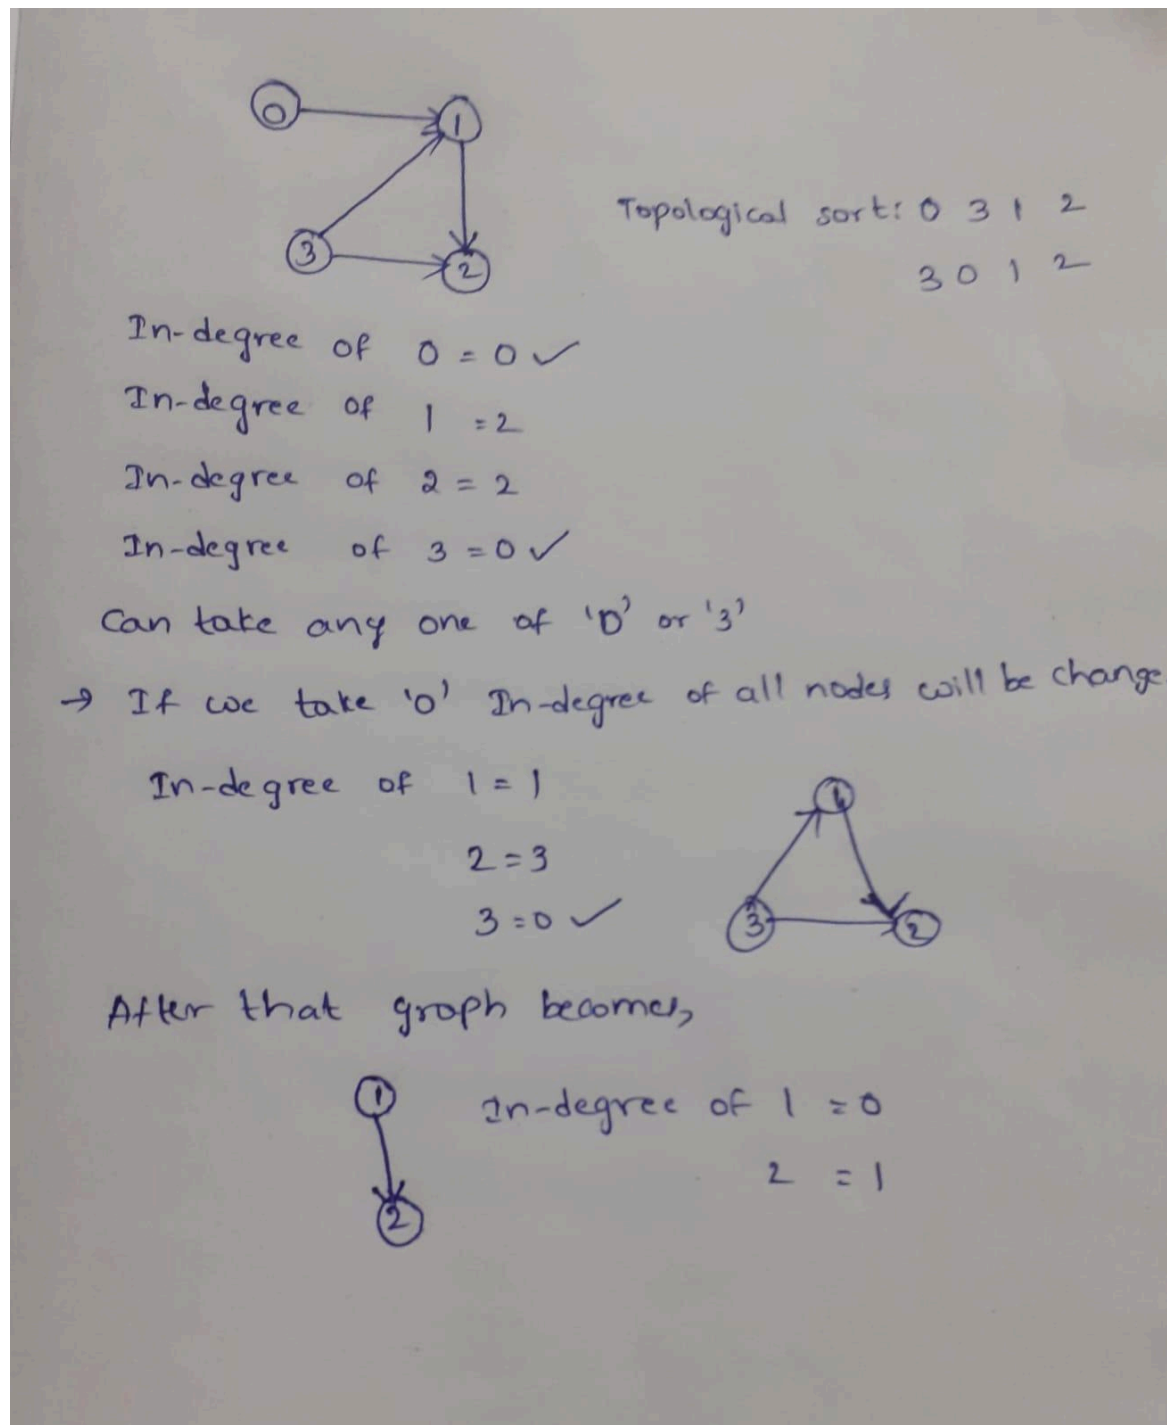 0
1
3
2
Topological sort: 0 3 1 2
3 0 1 2
In-degree of 0 = 0 ✓
In-degree of 1 = 2
In-degree of 2 = 2
In-degree of 3 = 0 ✓
Can take any one of '0' or '3'
→ If we take '0' In-degree of all nodes will be change
In-degree of 1 = 1
2 = 3
3 = 0 ✓
1
3
2
After that graph becomes,
1
2
In-degree of 1 = 0
2 = 1